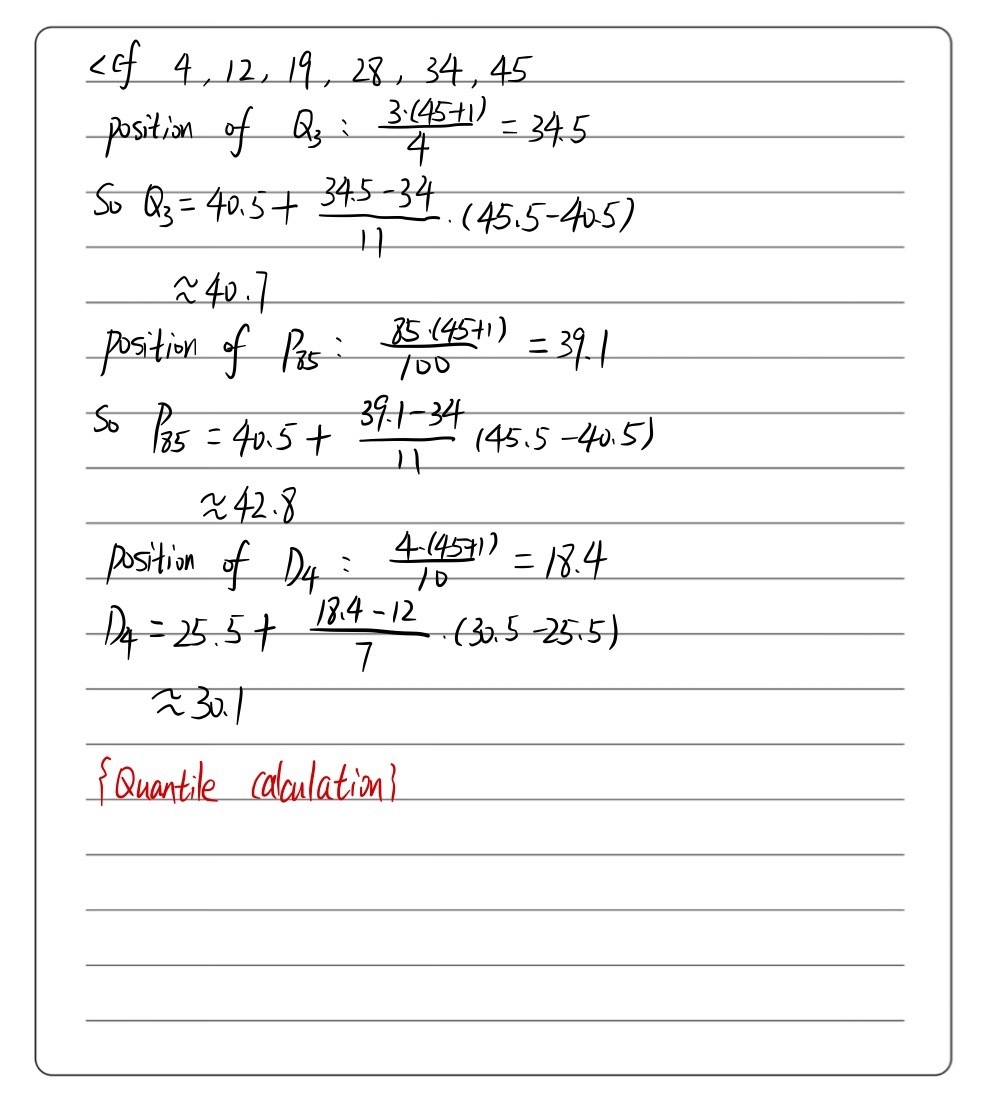 <cf 4, 12, 19, 28, 34, 45
position of Q₃ : 3·(45+1)/4 = 34.5
So Q₃ = 40.5 + (34.5-34)/11 · (45.5-40.5)
≈ 40.7
position of P₈₅ : 85·(45+1)/100 = 39.1
So P₈₅ = 40.5 + (39.1-34)/11 (45.5-40.5)
≈ 42.8
position of D₄ : 4·(45+1)/10 = 18.4
D₄ = 25.5 + (18.4-12)/7 · (30.5-25.5)
≈ 30.1
{Quantile calculation}